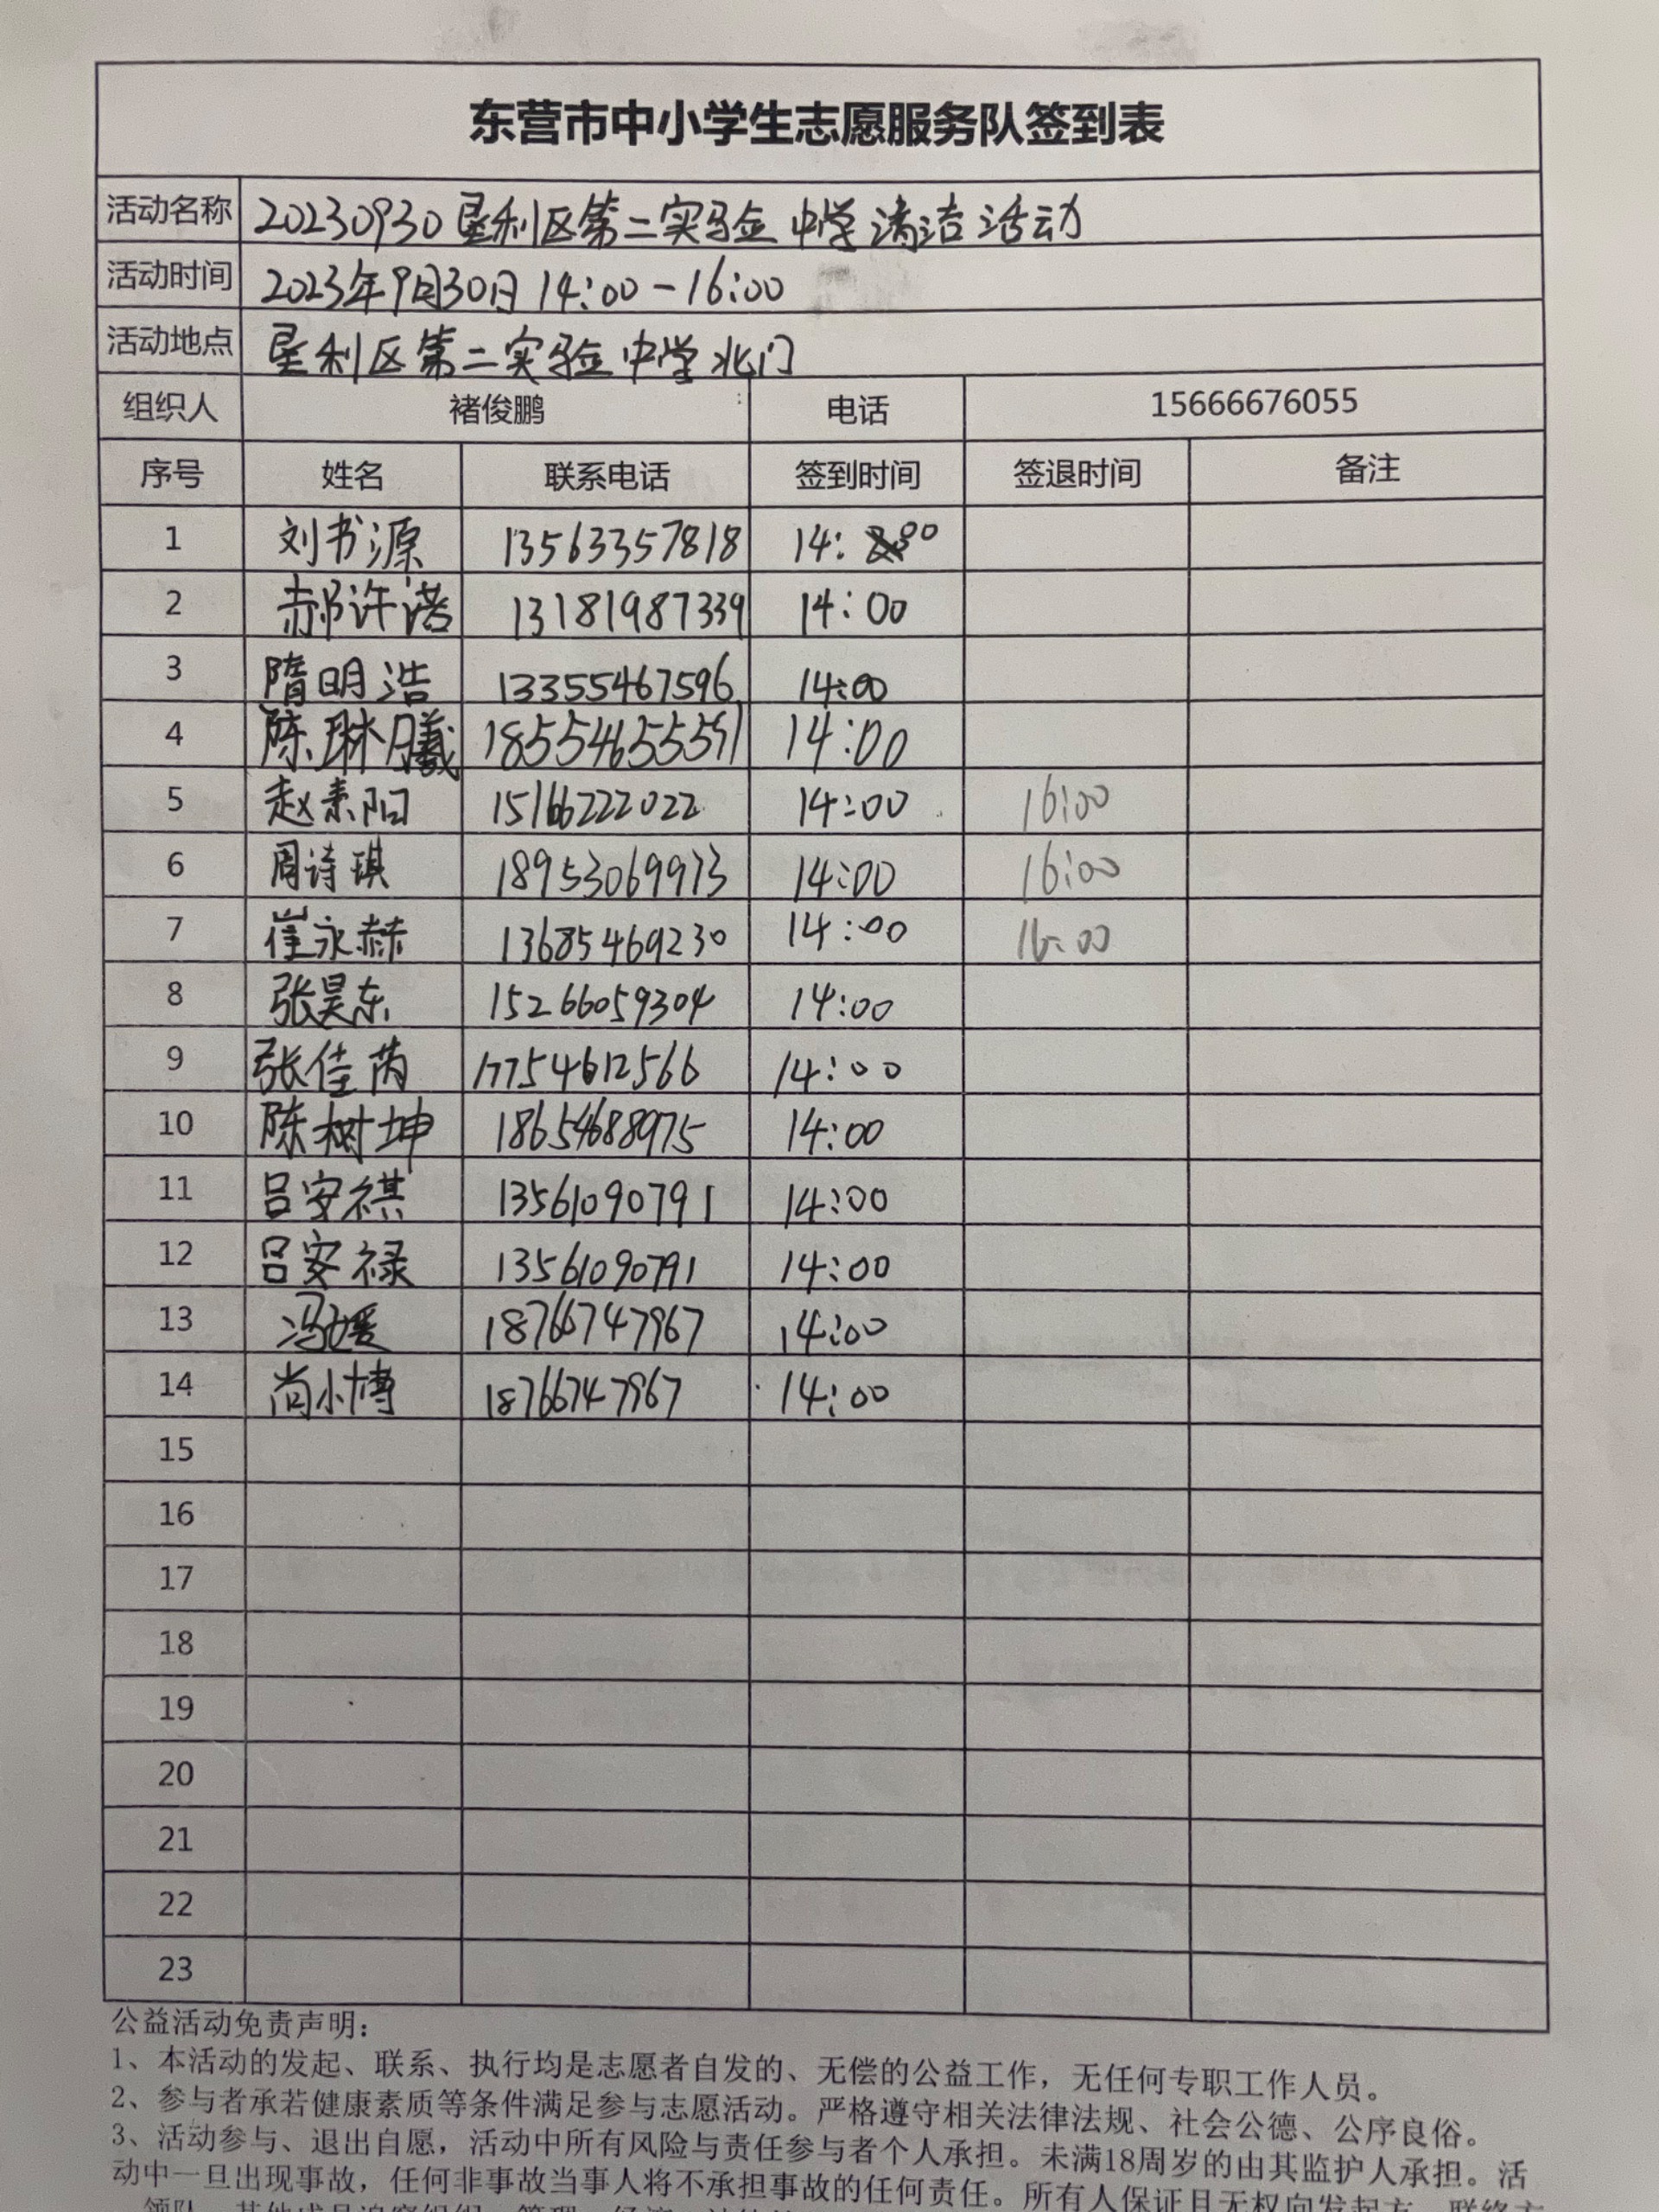 东营市中小学生志愿服务队签到表
活动名称 20230930垦利区第二实验中学清洁活动
活动时间 2023年9月30日 14:00-16:00
活动地点 垦利区第二实验中学北门
组织人 褚俊鹏 电话 15666676055
序号 姓名 联系电话 签到时间 签退时间 备注
1 刘书源 13563357818 14:00
2 郝许诺 13181987339 14:00
3 隋明浩 13355467596 14:00
4 陈琳曦 18554655591 14:00
5 赵素阳 15166222022 14:00 16:00
6 周诗琪 18953069973 14:00 16:00
7 崔永赫 13685469230 14:00 16:00
8 张昊东 15266059304 14:00
9 张佳芮 17754612566 14:00
10 陈树坤 18654688975 14:00
11 吕安祺 13561090791 14:00
12 吕安禄 13561090791 14:00
13 冯媛 18766747967 14:00
14 尚小博 18766747967 14:00
15
16
17
18
19
20
21
22
23
公益活动免责声明：
1、本活动的发起、联系、执行均是志愿者自发的、无偿的公益工作，无任何专职工作人员。
2、参与者承若健康素质等条件满足参与志愿活动。严格遵守相关法律法规、社会公德、公序良俗。
3、活动参与、退出自愿，活动中所有风险与责任参与者个人承担。未满18周岁的由其监护人承担。活
动中一旦出现事故，任何非事故当事人将不承担事故的任何责任。所有人保证且无权向发起方、联络方